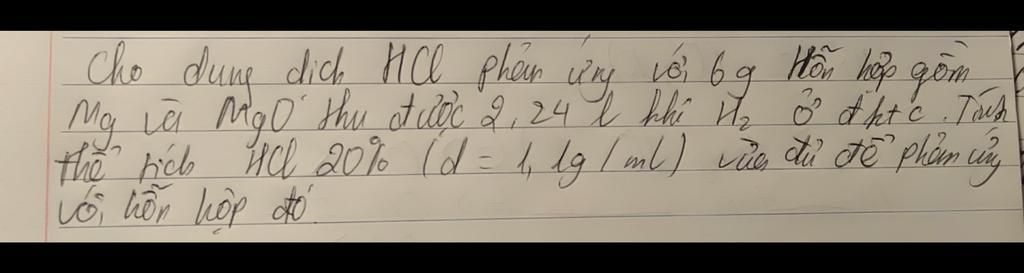 Cho dung dịch HCl phản ứng với 6g Hỗn hợp gồm
Mg và MgO thu được 2,24 l khí H₂ ở đktc. Tính
thể tích HCl 20% (d = 1,1g/ml) vừa đủ để phản ứng
với hỗn hợp đó.